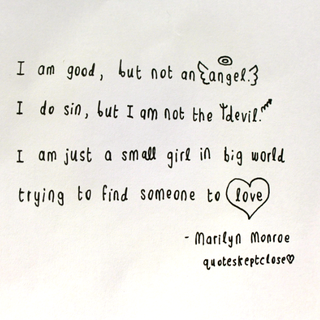 I am good, but not an angel.
I do sin, but I am not the devil.
I am just a small girl in big world
trying to find someone to love
- Marilyn Monroe
quoteskeptclose♡